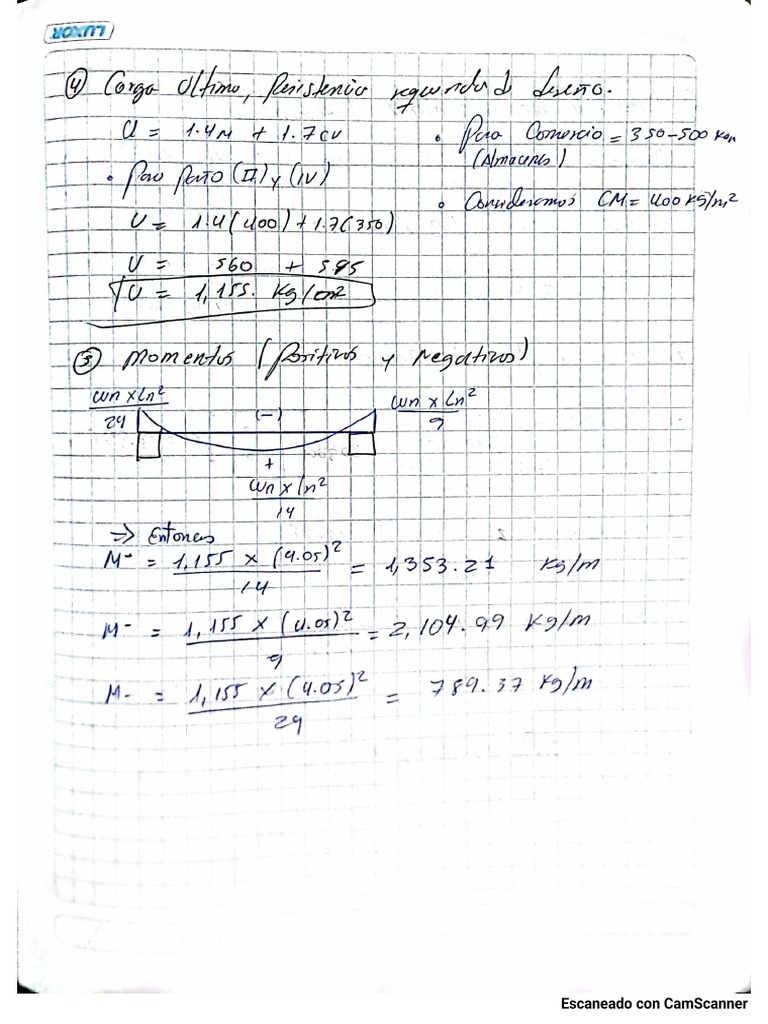 LUXOR
④ Carga Ultima, Resistencia requerida d diseño.
U = 1.4M + 1.7CV
• Para Comercio = 350-500
(Almacenes)
• Para paño (II) y (IV)
• Consideramos CM = 400 KG/m²
U = 1.4(400) + 1.7(350)
U = 560 + 595
U = 1,155. Kg/cm²
⑤ Momentos (Positivos y Negativos)
wn x ln² / 24
(-)
wn x ln² / 9
+
wn x ln² / 14
⇒ Entonces
M+ = 1,155 x (4.05)² / 14 = 1,353.21 Kg/m
M- = 1,155 x (4.05)² / 9 = 2,104.99 Kg/m
M- = 1,155 x (4.05)² / 24 = 789.37 Kg/m
Escaneado con CamScanner